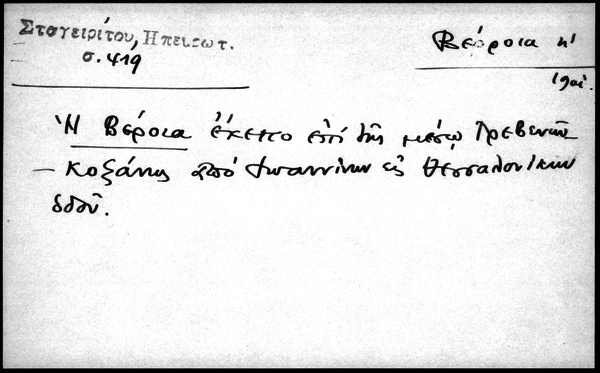 Σταγειρίτου, Ηπειρωτ.
σ. 419
Βέρροια κ'
Ἡ Βέροια ἔκειτο ἐπί τῆς μέσῳ Γρεβενῶν
– Κοζάνης ἀπό Ἰωαννίνων εἰς Θεσσαλονίκην
ὁδοῦ.